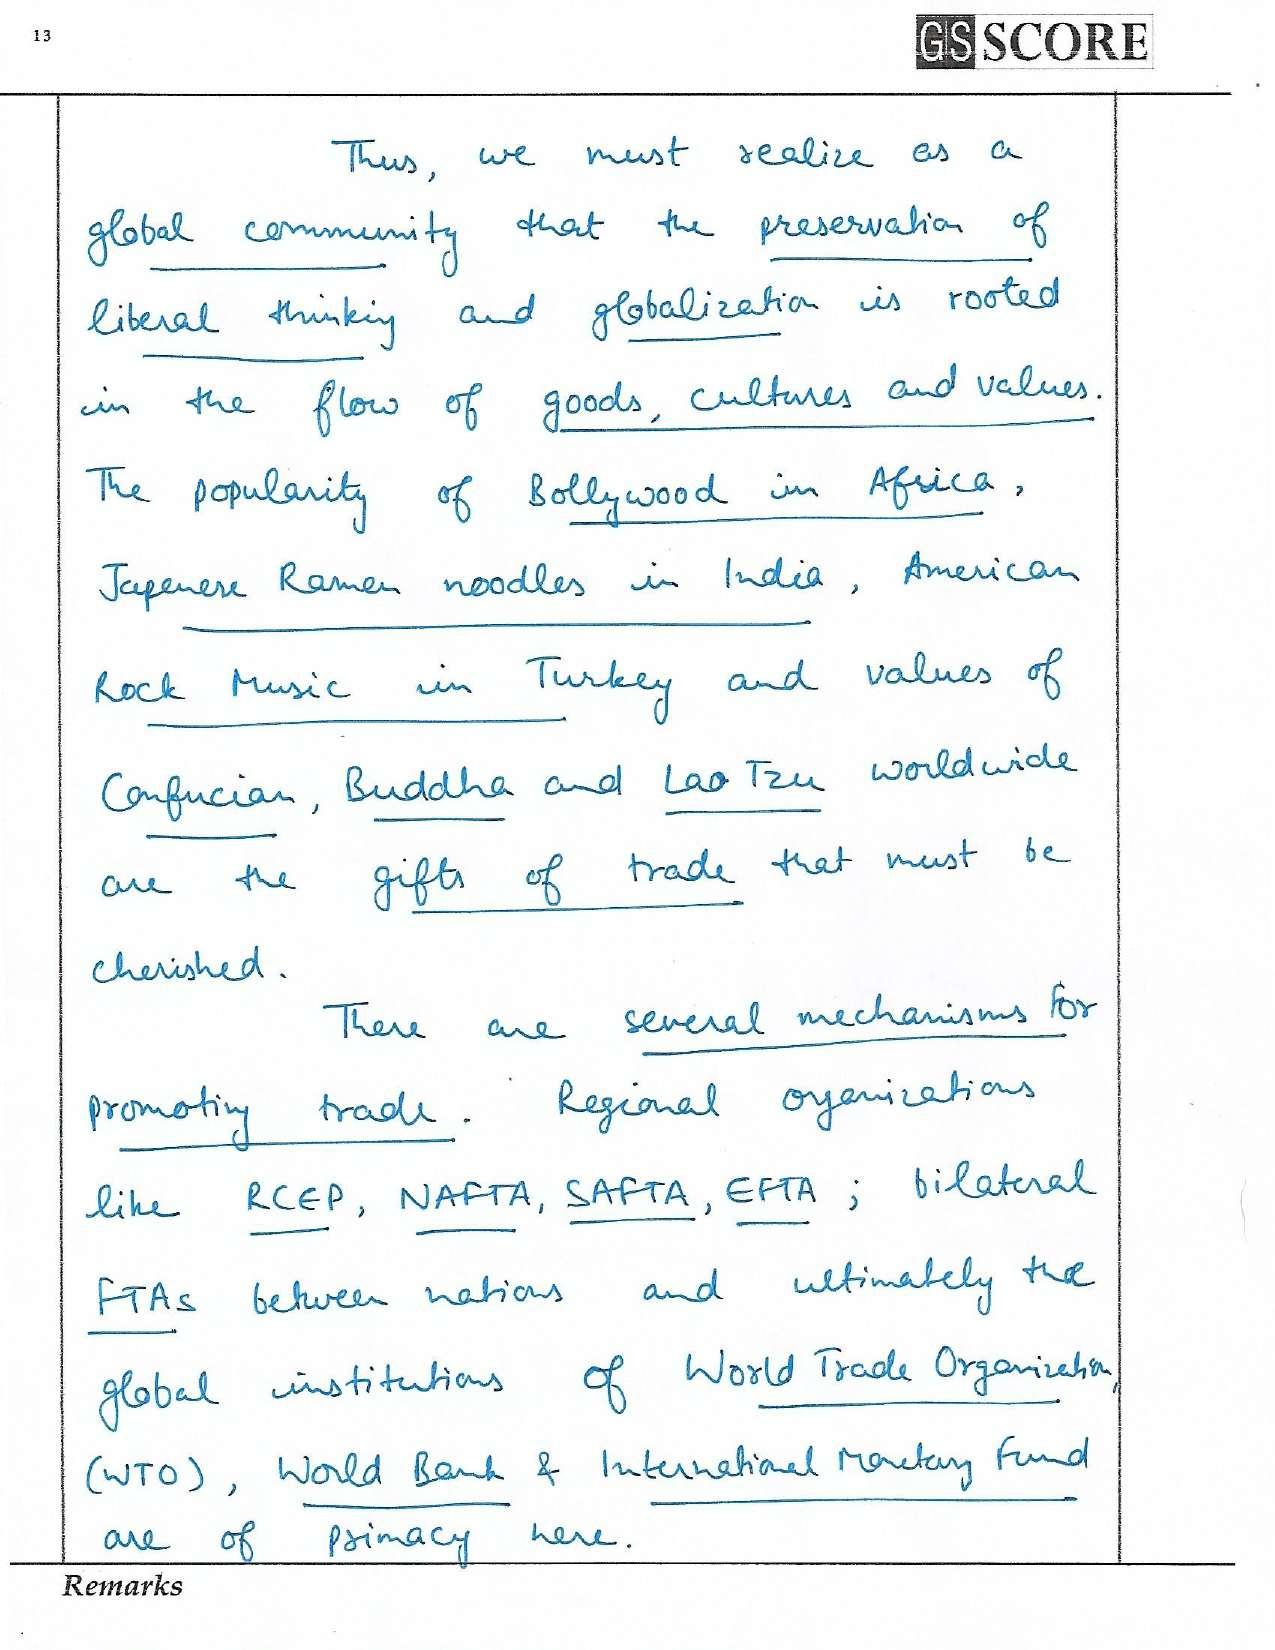 13
GS SCORE
Thus, we must realize as a
global community that the preservation of
liberal thinking and globalization is rooted
in the flow of goods, cultures and values.
The popularity of Bollywood in Africa,
Japenese Ramen noodles in India, American
Rock Music in Turkey and values of
Confucian, Buddha and Lao Tzu worldwide
are the gifts of trade that must be
cherished.
There are several mechanisms for
promoting trade. Regional organizations
like RCEP, NAFTA, SAFTA, EFTA; bilateral
FTAs between nations and ultimately the
global institutions of World Trade Organization,
(WTO), World Bank & International Monetary Fund
are of primacy here.
Remarks